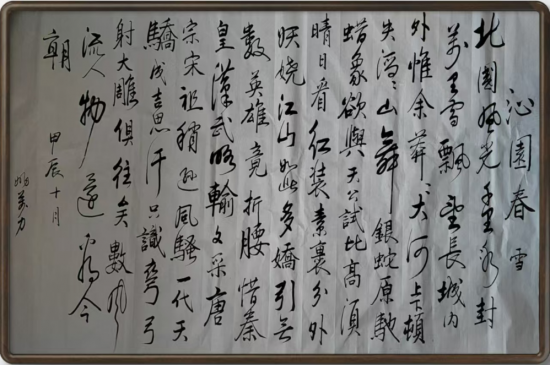 沁園春 雪
北國風光千里冰封
萬里雪飄望長城内
外惟余莽〻大河上下頓
失滔〻山舞銀蛇原馳
蜡象欲與天公試比高須
晴日看红装素裹分外
妖娆江山如此多嬌引無
數英雄竟折腰惜秦
皇漢武略輸文采唐
宗宋祖稍遜風騷一代天
驕成吉思汗只識彎弓
射大雕俱往矣數風
流人物還看今
朝
甲辰十月